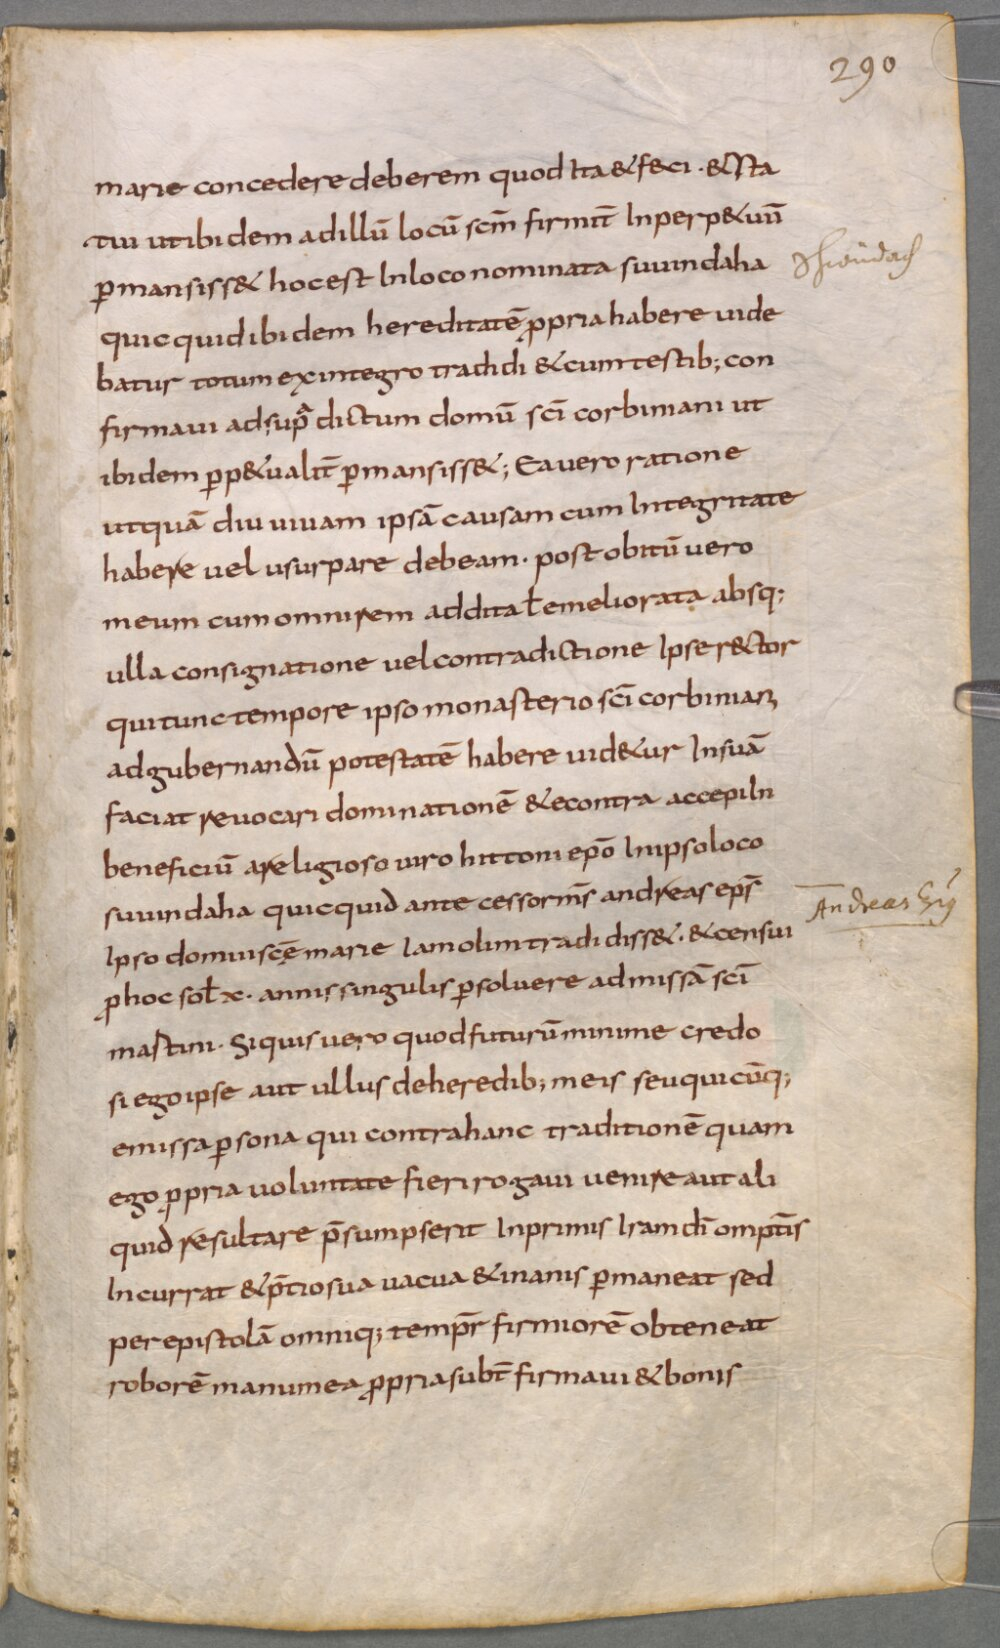 290
marie concedere deberem quod ita & feci · & sta
tui ut ibidem ad illū locū scm̄ firmit̄ In perp&uū
ꝑmansiss& hoc est In loco nominata suuindaha
quicquid ibidem hereditatē ꝓpria habere uide
batur totum ex integro tradidi & cum testib; con
firmaui ad supͣ dictum domū scī corbiniani ut
ibidem ꝑp&ualit̄ ꝑmansiss&; Ea uero ratione
ut quā diu uiuam ipsā causam cum Integritate
habere uel usurpare debeam · post obitū uero
meum cum omni rem addita ł emeliorata absq;
ulla consignatione uel contradictione Ipse rector
qui tunc tempore ipso monasterio scī corbiniani
ad gubernandū potestatē habere uid&ur In suā
faciat reuocari dominationē & econtra accepi In
beneficiū a religioso uiro hittoni ep̄o In ipso loco
suuindaha quicquid ante cessor m̄s andreas ep̄s
Ipso domui scę̄ marie Iam olim tradidiss& · & censui
ꝓ hoc sol̄ x · annis singulis ꝑsoluere ad missā scī
mastini · Si quis uero quod futurū minime credo
si ego ipse aut ullus de heredib; meis seu quicūq;
emissa ꝑsona qui contra hanc traditionē quam
ego ꝓpria uoluntate fieri rogaui uenire aut ali
quid resultare p̄sumpserit In primis Iram dī omp̄tis
Incurrat & p̄tio sua uacua & inanis ꝑmaneat sed
per epistolā omniq; temp̄r firmiorē obteneat
roborē manu mea ꝓpria subt̄ firmaui & bonis
Andreas